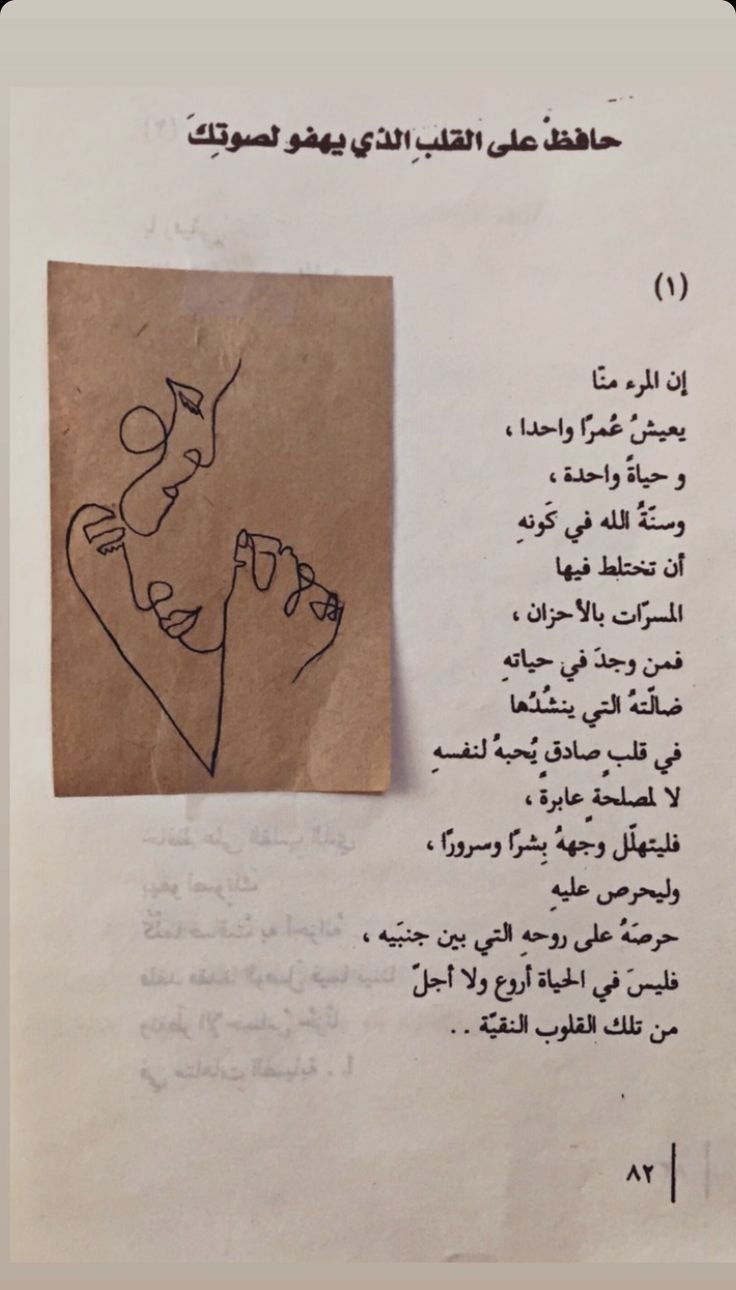 حافظْ على القلبِ الذي يهفو لصوتِكَ
(١)
إن المرء منّا
يعيشُ عُمرًا واحدا ،
و حياةً واحدة ،
وسنّةُ الله في كَونهِ
أن تختلط فيها
المسرّات بالأحزان ،
فمن وجدَ في حياتهِ
ضالّتهُ التي ينشُدُها
في قلبٍ صادقٍ يُحبهُ لنفسهِ
لا لمصلحةٍ عابرةٍ ،
فليتهلّل وجههُ بِشرًا وسرورًا ،
وليحرص عليهِ
حرصَهُ على روحهِ التي بين جنبَيه ،
فليسَ في الحياة أروع ولا أجلّ
من تلك القلوب النقيّة . .
٨٢